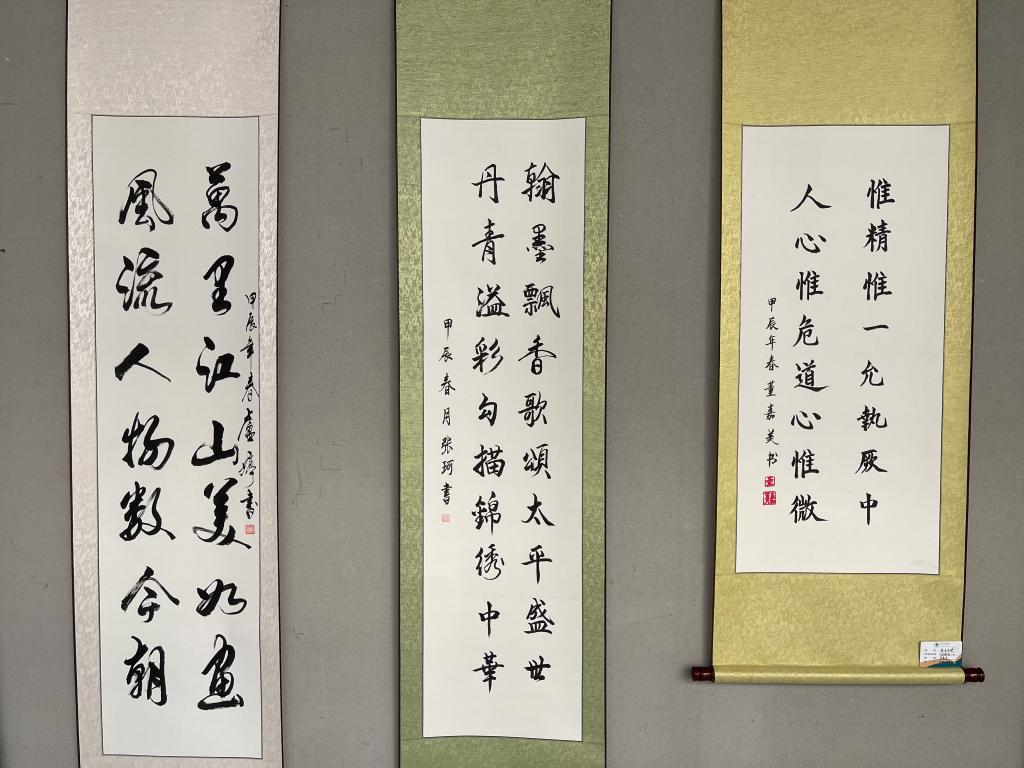 惟精惟一允執厥中
人心惟危道心惟微
甲辰年春董嘉美书
翰墨飄香歌頌太平盛世
丹青溢彩勾描錦綉中華
甲辰春月张珂書
萬里江山美如畫
風流人物數今朝
甲辰年春盧婷書